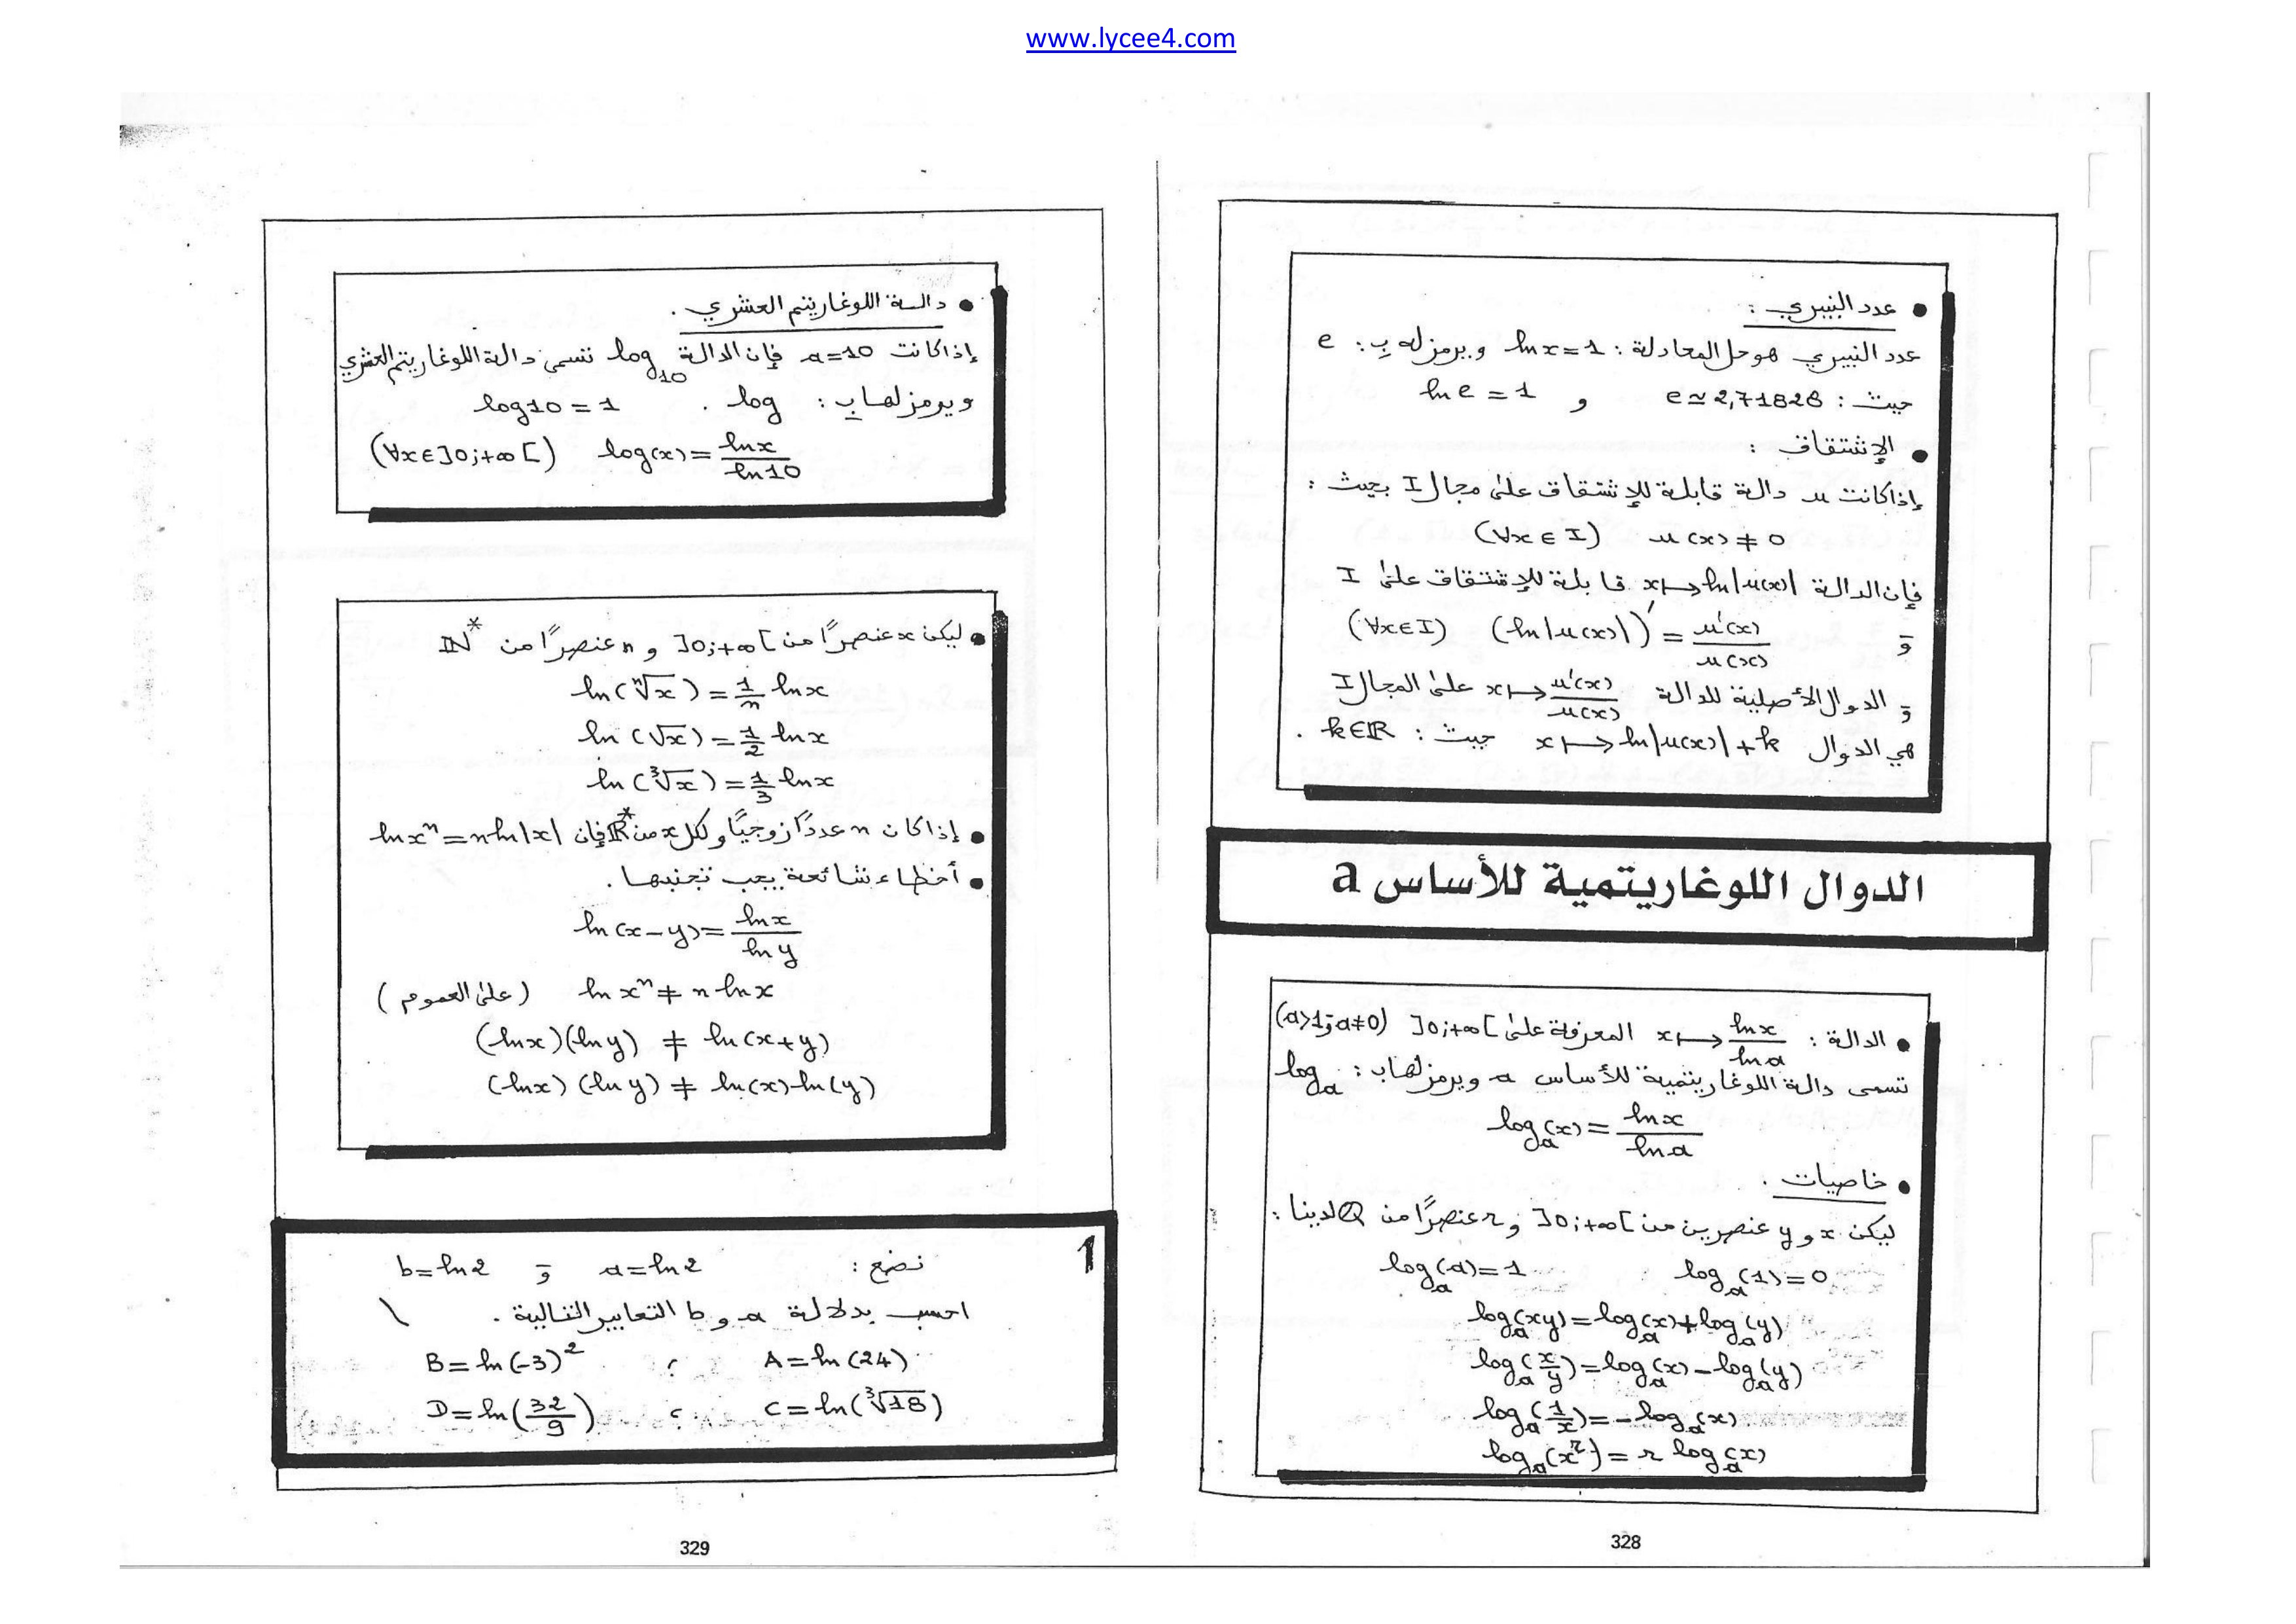 www.lycee4.com
• عدد النبيري :
عدد النبيري هو حل المعادلة : ln x = 1 و يرمز له بِ : e
حيث : e ≃ 2,71828 و ln e = 1
• الإشتقاق :
إذا كانت u دالة قابلة للإشتقاق على مجال I بحيث :
(∀x ∈ I) u(x) ≠ 0
فإن الدالة x ↦ ln|u(x)| قابلة للإشتقاق على I
و (∀x∈I) (ln|u(x)|)' = u'(x)/u(x)
و الدوال الأصلية للدالة x ↦ u'(x)/u(x) على المجال I
هي الدوال x ↦ ln|u(x)| + k حيث : k∈ℝ .
الدوال اللوغاريتمية للأساس a
• الدالة : x ↦ ln x/ln a المعرفة على ]0;+∞[ (a>1 و a≠0)
تسمى دالة اللوغاريتمية للأساس a ويرمز لها بِ : log_a
log_a(x) = ln x/ln a
• خاصيات .
ليكن x و y عنصرين من ]0;+∞[ و r عنصرًا من ℚ لدينا :
log_a(a) = 1 log_a(1) = 0
log_a(xy) = log_a(x) + log_a(y)
log_a(x/y) = log_a(x) - log_a(y)
log_a(1/x) = - log_a(x)
log_a(x^r) = r log_a(x)
328
• دالة اللوغاريتم العشري .
إذا كانت a=10 فإن الدالة log_10 تسمى دالة اللوغاريتم العشري
ويرمز لها بِ : log . log10 = 1
(∀x∈]0;+∞[) log(x) = ln x/ln 10
• ليكن x عنصرًا من ]0;+∞[ و n عنصرًا من ℕ*
ln(ⁿ√x) = 1/n ln x
ln(√x) = 1/2 ln x
ln(³√x) = 1/3 ln x
• إذا كان n عددًا زوجيًا و لكل x من ℝ* فإن ln xⁿ = n ln|x|
• أخطاء شائعة يجب تجنبها .
ln(x-y) = ln x/ln y
ln xⁿ ≠ n ln x (على العموم)
(ln x)(ln y) ≠ ln(x+y)
(ln x)(ln y) ≠ ln(x) ln(y)
1
نضع : a = ln 2 و b = ln 2
احسب بدلالة a و b التعابير التالية .
A = ln(24) ; B = ln(-3)²
C = ln(³√18) ; D = ln(32/9)
329